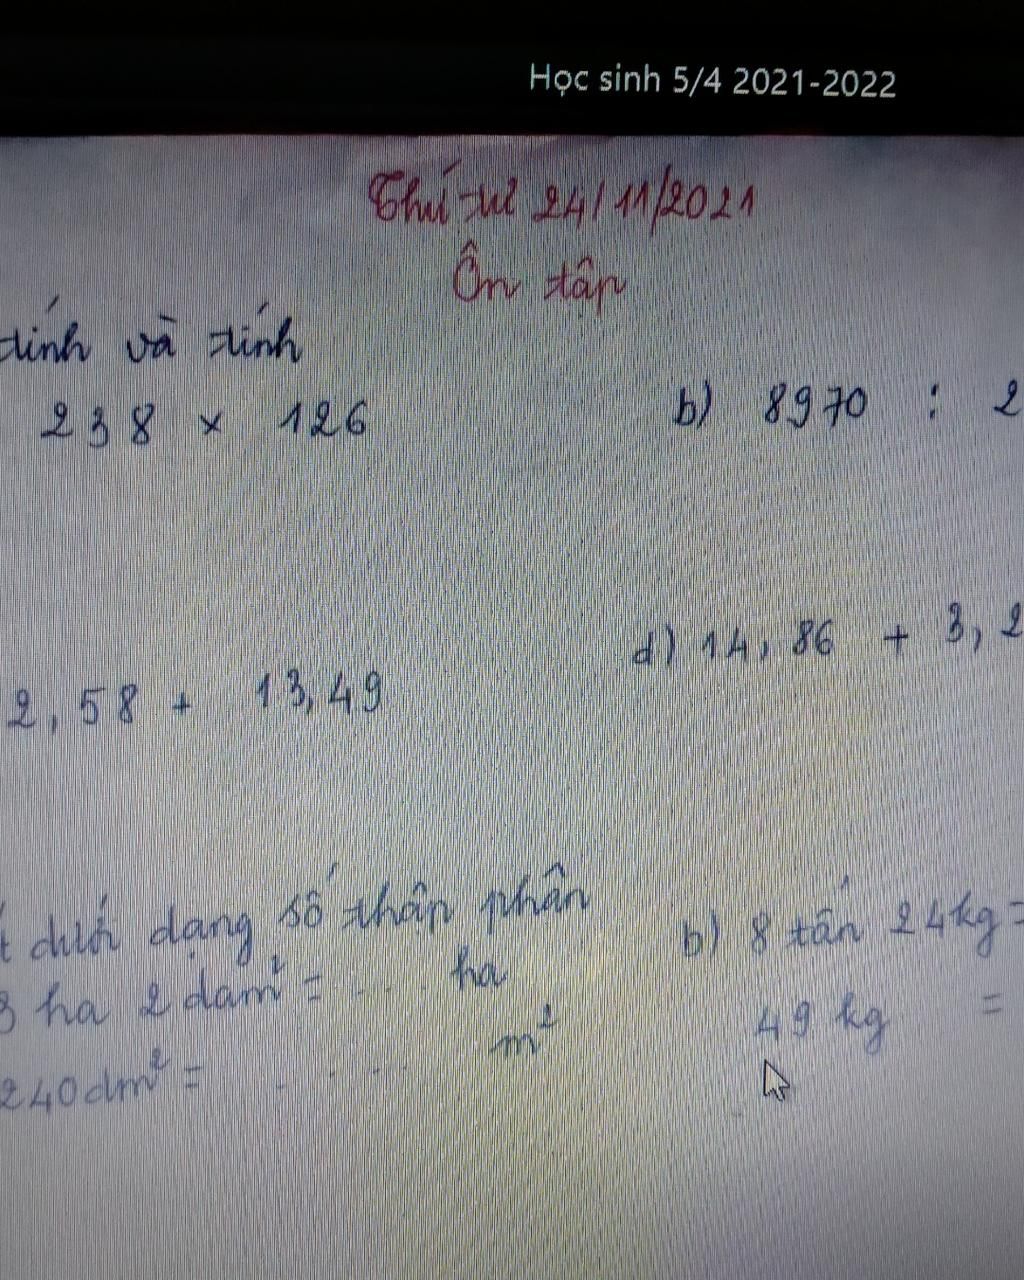 Học sinh 5/4 2021-2022
Thứ tư 24/11/2021
Ôn tập
tính và tính
238 x 126
b) 8970 : 2
2,58 + 13,49
d) 14,86 + 3,2
dưới dạng số thập phân
3 ha 2 dam² = .... ha
240dm² = ..... m²
b) 8 tấn 24kg =
49 kg =